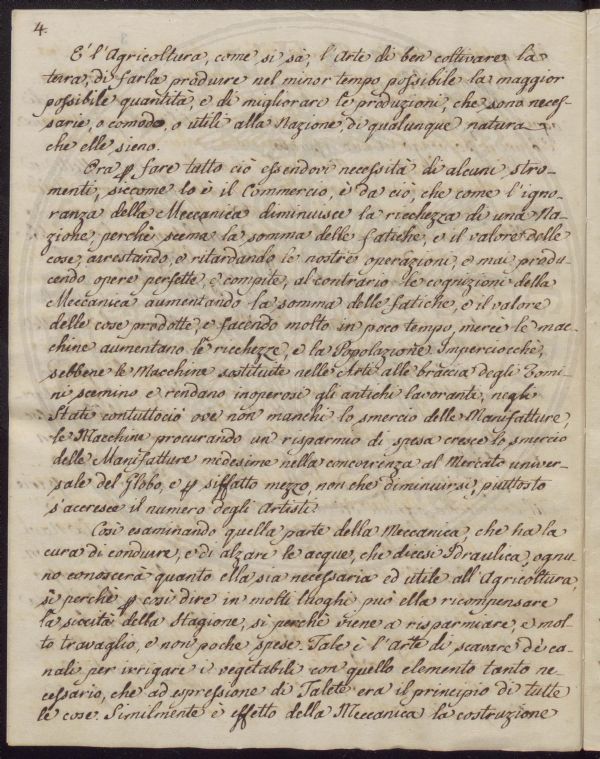 4.
E' l'Agricoltura, come si sà, l'Arte di ben coltivare la
terra, di farla produrre nel minor tempo possibile la maggior
possibile quantità, e di migliorare le produzioni, che sono neces-
sarie, o comode, o utili alla Nazione, di qualunque natura
che elle sieno.
Ora p fare tutto ciò essendovi necessità di alcuni stro-
menti, siccome lo è il Commercio, è da ciò, che come l'igno-
ranza della Meccanica diminuisce la ricchezza di una Na-
zione, perchè scema la somma delle fatiche, e il valore delle
cose, arrestando, e ritardando le nostre operazioni, e mai produ-
cendo opere perfette, e compite, al contrario le cognizioni della
Meccanica aumentando la somma delle fatiche, e il valore
delle cose prodotte, e facendo molto in poco tempo, mercè le mac-
chine aumentano le ricchezze, e la Popolazione. Imperciocchè,
sebbene le Macchine sostituite nelle Arti alle braccia degli Uomi-
ni scemino e rendano inoperosi gli antichi lavoranti, negli
Stati contuttociò ove non manchi lo smercio delle Manifatture,
le Macchine procurando un risparmio di spesa cresce lo smercio
delle Manifatture medesime nella concorrenza al Mercato univer-
sale del Globo, e p siffatto mezzo, non che diminuirsi, piuttosto
s'accresce il numero degli Artisti.
Così esaminando quella parte della Meccanica, che ha la
cura di condurre, e di alzare le acque, che dicesi Idraulica, ognu-
no conoscerà quanto ella sia necessaria ed utile all'Agricoltura,
sì perchè p così dire in molti luoghi può ella ricompensare
la siccità della Stagione, sì perchè viene a risparmiare, e mol-
to travaglio, e non poche spese. Tale è l'Arte di scavare de' ca-
nali per irrigare i vegetabili con quello elemento tanto ne-
cessario, che ad espressione di Talete era il principio di tutte
le cose. Similmente è effetto della Meccanica la costruzione